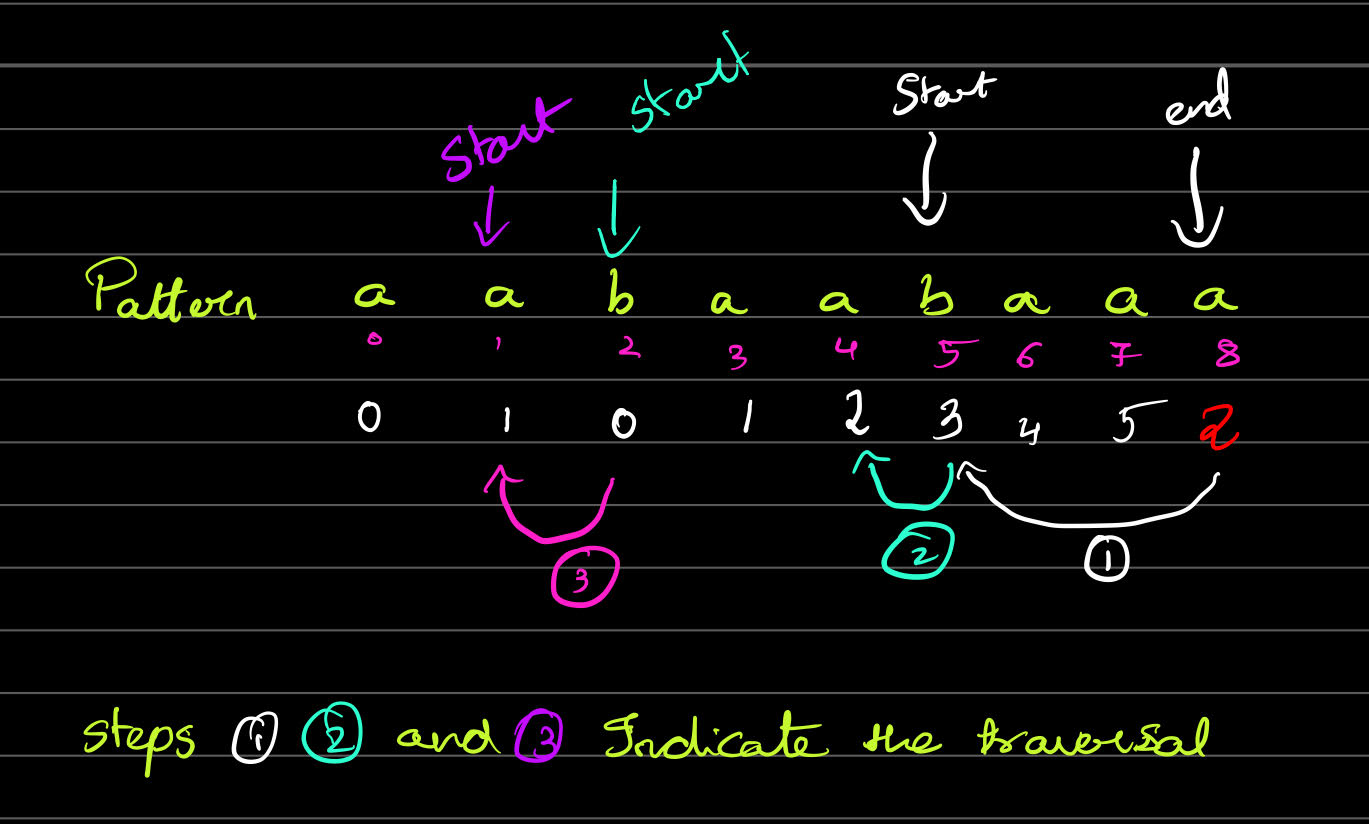 start
start
start
end
Pattern a a b a a b a a a
0 1 2 3 4 5 6 7 8
0 1 0 1 2 3 4 5 2
3 2 1
steps 1 2 and 3 Indicate the traversal